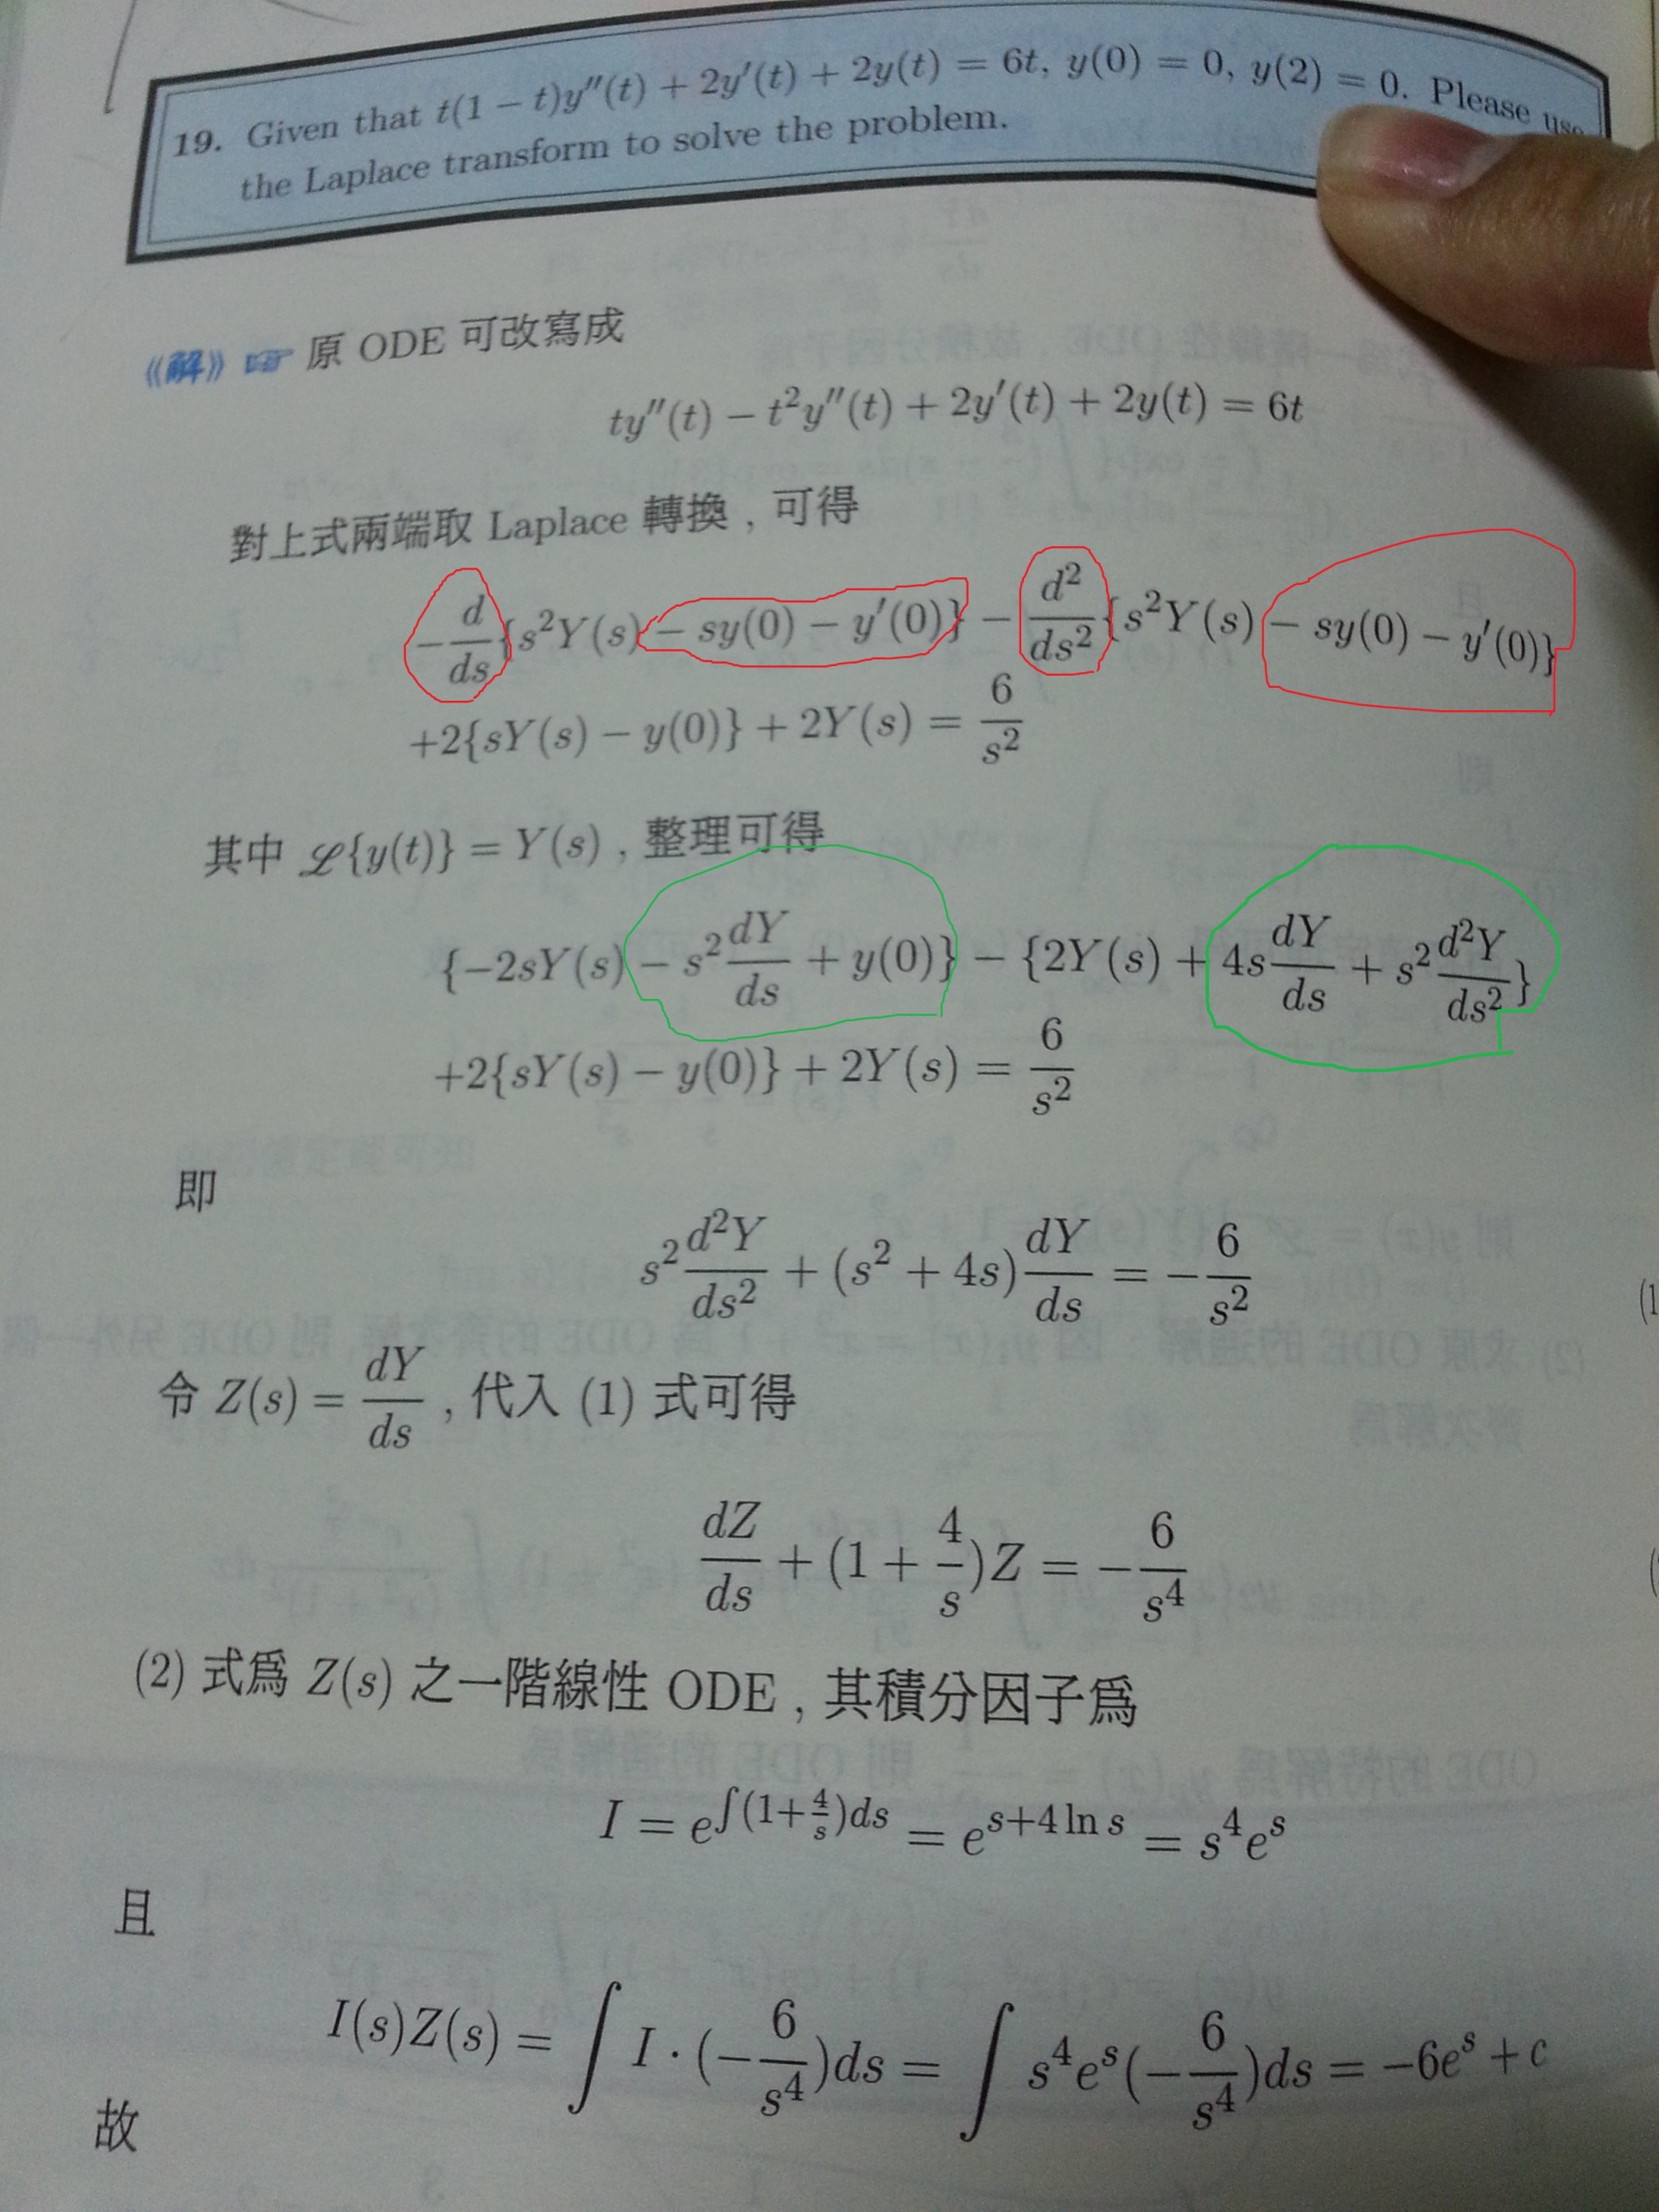 19. Given that t(1 − t)y″(t) + 2y′(t) + 2y(t) = 6t, y(0) = 0, y(2) = 0. Please use
the Laplace transform to solve the problem.
《解》☞ 原 ODE 可改寫成
ty″(t) − t²y″(t) + 2y′(t) + 2y(t) = 6t
對上式兩端取 Laplace 轉換 , 可得
−d/ds{s²Y(s) − sy(0) − y′(0)} − d²/ds²{s²Y(s) − sy(0) − y′(0)}
+2{sY(s) − y(0)} + 2Y(s) = 6/s²
其中 ℒ{y(t)} = Y(s) , 整理可得
{−2sY(s) − s²dY/ds + y(0)} − {2Y(s) + 4s dY/ds + s²d²Y/ds²}
+2{sY(s) − y(0)} + 2Y(s) = 6/s²
即
s²d²Y/ds² + (s² + 4s)dY/ds = −6/s²
(1
令 Z(s) = dY/ds , 代入 (1) 式可得
dZ/ds + (1 + 4/s)Z = −6/s⁴
(2) 式爲 Z(s) 之一階線性 ODE , 其積分因子爲
I = e^∫(1+4/s)ds = e^s+4 ln s = s⁴eˢ
且
I(s)Z(s) = ∫ I · (−6/s⁴)ds = ∫ s⁴eˢ(−6/s⁴)ds = −6eˢ + c
故